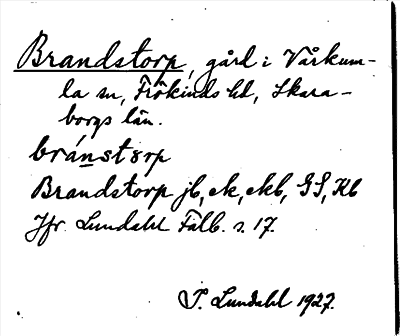 Brandstorp, gård i Vårkum-
la sn, Frökinds hd, Skara-
borgs län.
bránstørp
Brandstorp jb, ek, ekb, GS, Kb
Jfr Lundahl Falb. s. 17.
I. Lundahl 1927.